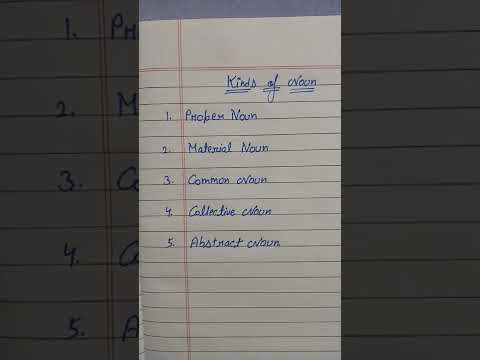 Kinds of Noun
1. Proper Noun
2. Material Noun
3. Common Noun
4. Collective Noun
5. Abstract Noun
1. Pr
2. M
3. Co
4. Co
5. A